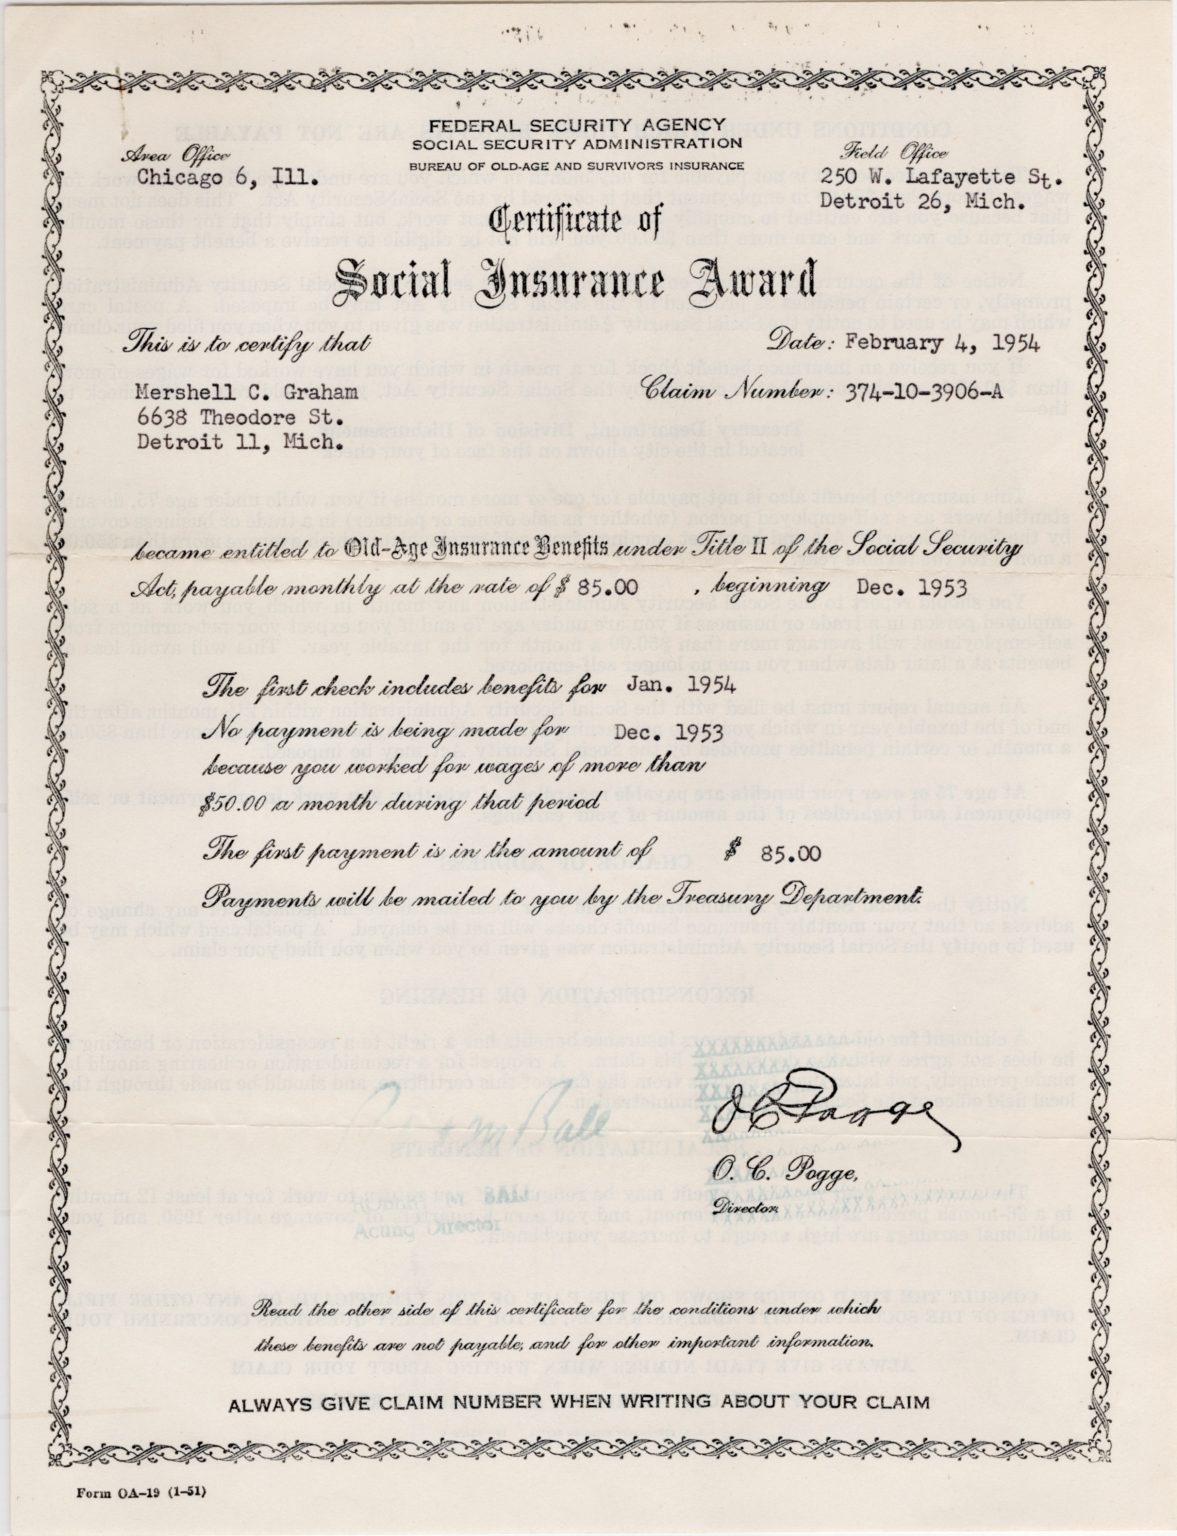 FEDERAL SECURITY AGENCY
SOCIAL SECURITY ADMINISTRATION
BUREAU OF OLD-AGE AND SURVIVORS INSURANCE
Area Office
Chicago 6, Ill.
Field Office
250 W. Lafayette St.
Detroit 26, Mich.
Certificate of
Social Insurance Award
This is to certify that
Date: February 4, 1954
Mershell C. Graham
6638 Theodore St.
Detroit 11, Mich.
Claim Number: 374-10-3906-A
became entitled to Old-Age Insurance Benefits under Title II of the Social Security
Act, payable monthly at the rate of $ 85.00 , beginning Dec. 1953
The first check includes benefits for Jan. 1954
No payment is being made for Dec. 1953
because you worked for wages of more than
$50.00 a month during that period
The first payment is in the amount of $ 85.00
Payments will be mailed to you by the Treasury Department.
M Ball
O C Pogge
O. C. Pogge,
Director
M. BALL
Acting Director
Read the other side of this certificate for the conditions under which
these benefits are not payable, and for other important information.
ALWAYS GIVE CLAIM NUMBER WHEN WRITING ABOUT YOUR CLAIM
Form OA-19 (1-51)